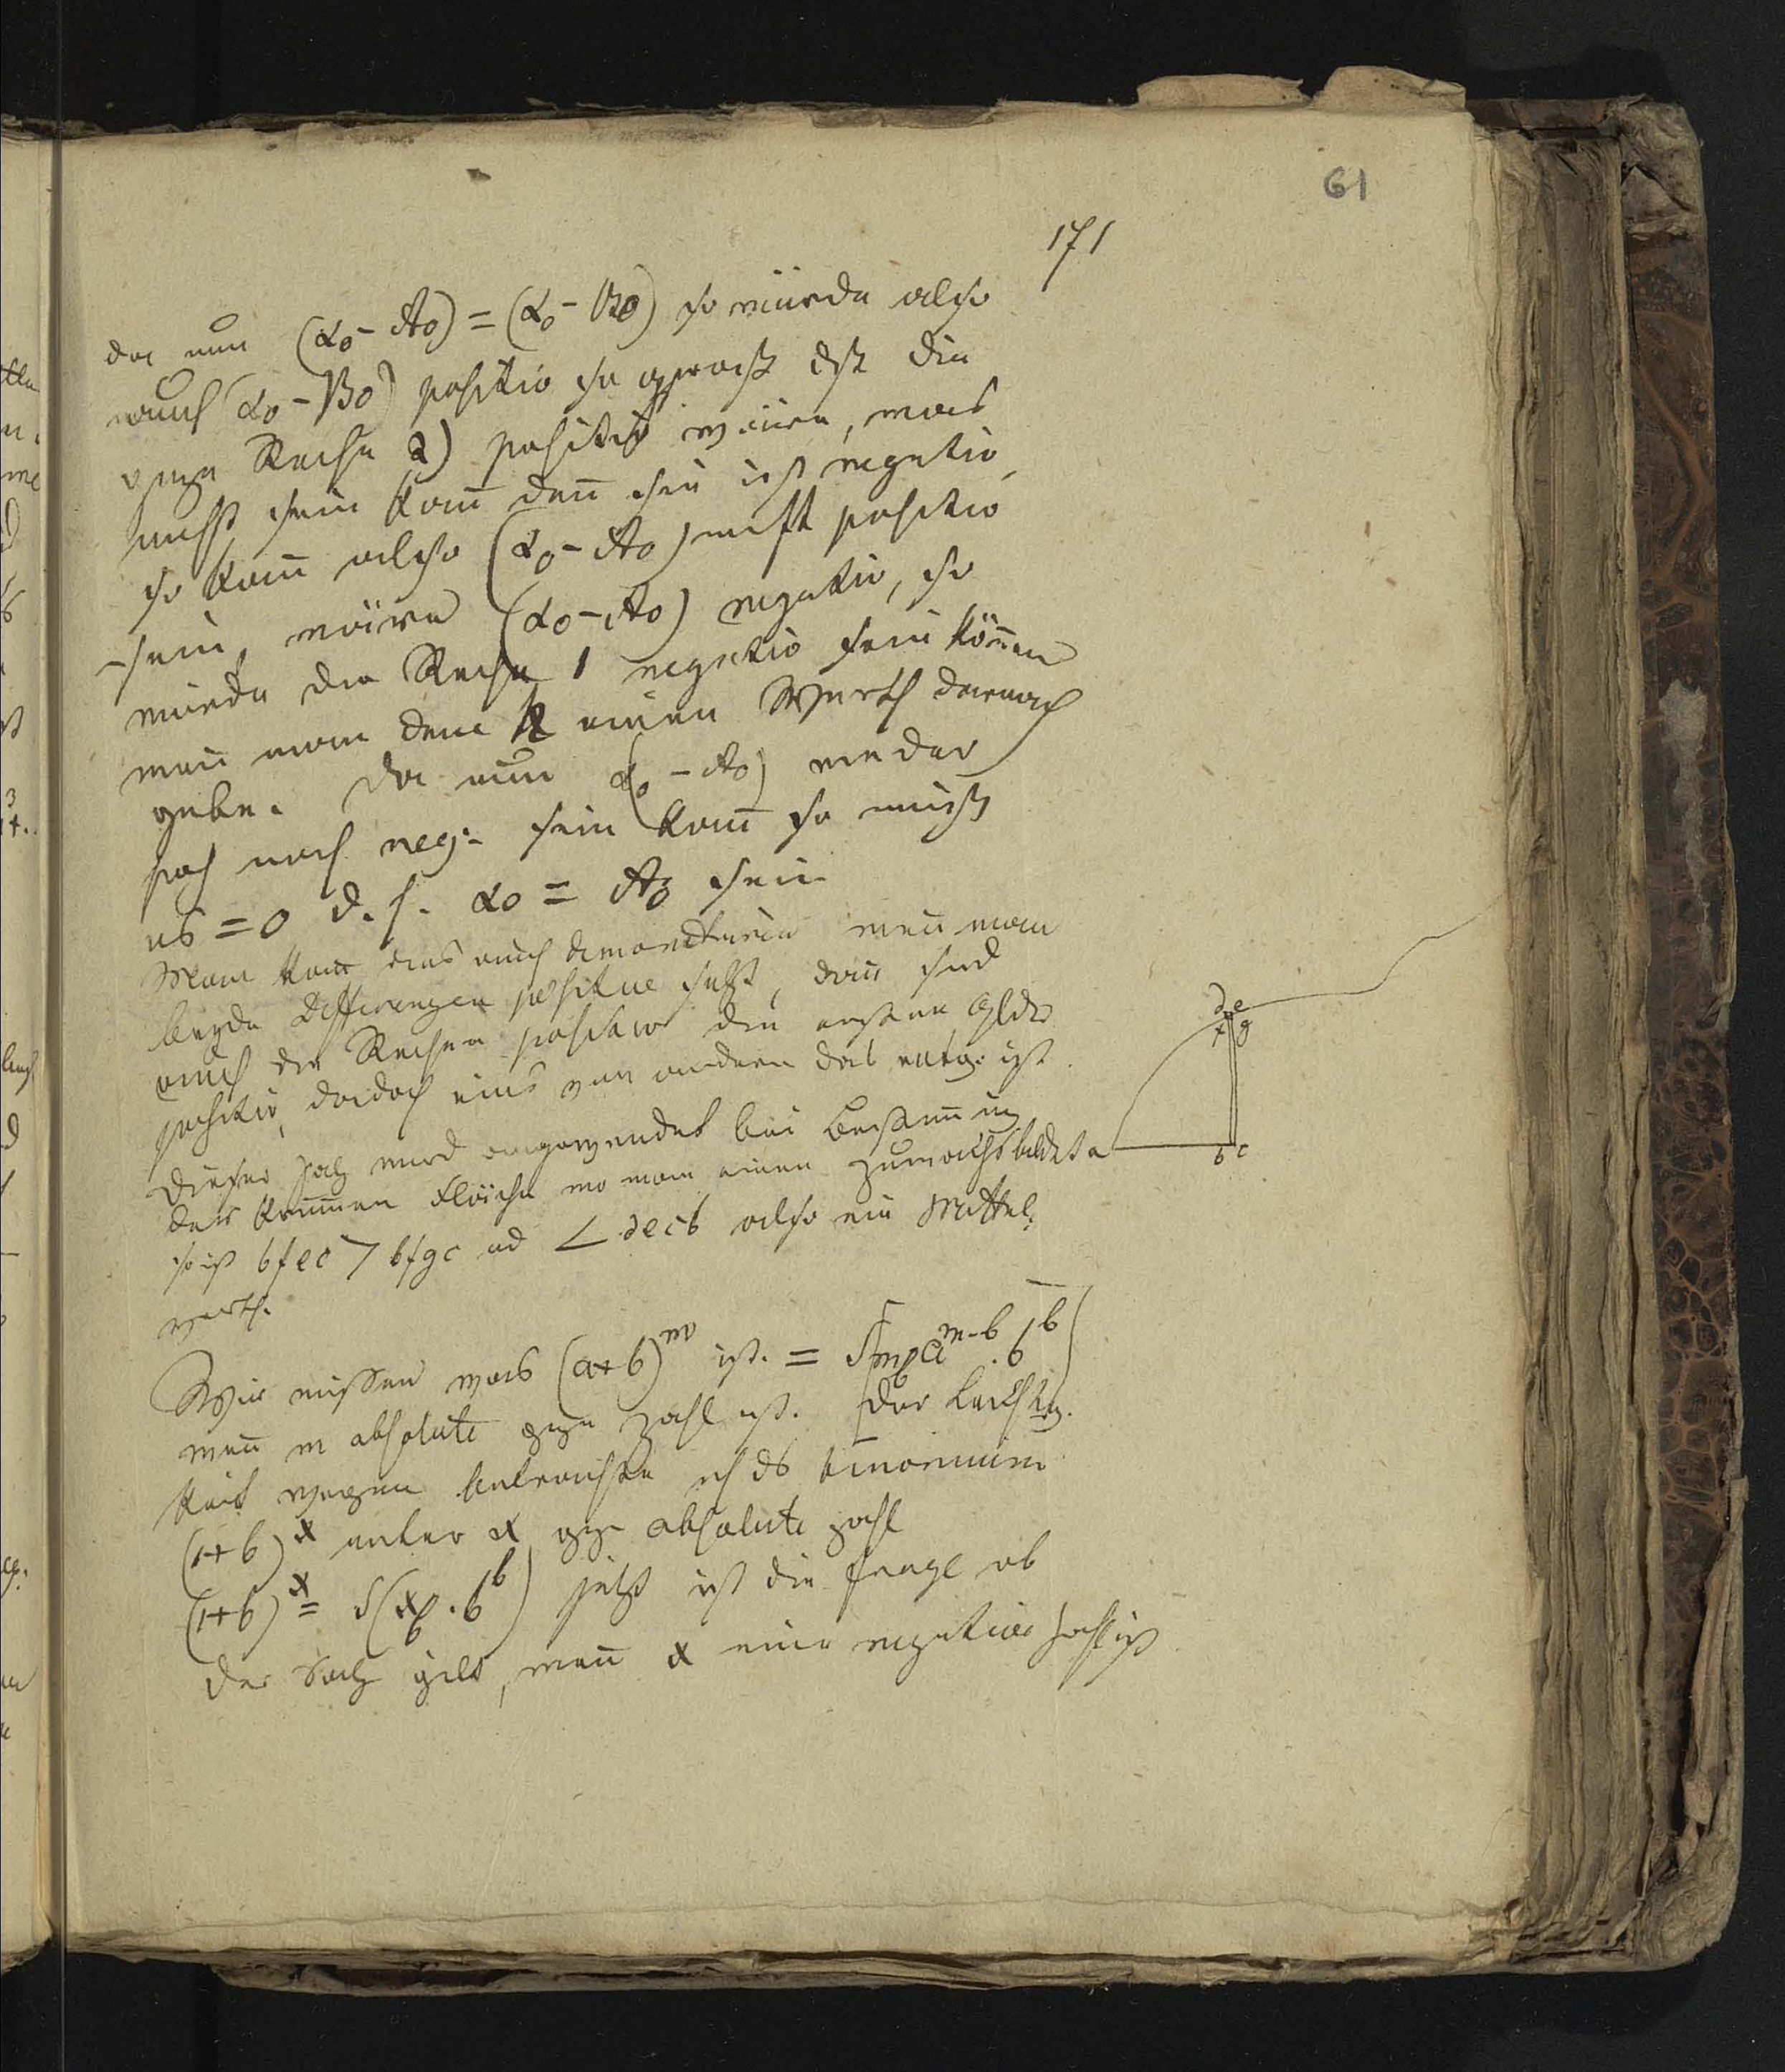 61
171
da nun (α0 - A0) = (α0 - B0) so würde also
auch (α0 - B0) positiv so groß daß die
ganze Reihe 2) positiv wäre, was
nicht sein kañ deñ sie ist negativ
so kañ also (α0 - A0) nicht positiv
sein, wäre (α0 - A0) negativ, so
würde die Reihe 1 negativ sein köñen
weñ man dem einen Werth darnach
gebe. Da nun (α0 - A0) weder
pos noch neg. sein kañ so muß
es = 0 d. h. α0 = A0 sein
Man kañ das auch demonstriren weñ man
beyde Differenzen positive setzt, dañ sind
auch die Reihen positiv die ersten Glieder
positiv, da doch eins von andern das entg. ist
Dieser Satz wird angewendet bei Bestim̃ung
der krum̃en Fläche wo man einen Zuwachs bildet
so ist bfec > bfgc und < decb also ein Mittel-
werth.
d e
f g
a b c
Wir wissen was (a+b)^m ist. = S(m a^{m-b} . b^b)
weñ m absolute gze Zahl ist. Der Leichtig-
keit wegen betrachte ich ds binomium
(1+b)^x unter x gze absolute Zahl
(1+b)^x = S(x . b^b) jetzt ist die Frage ob
der Satz gilt, weñ x eine negative Zahl ist